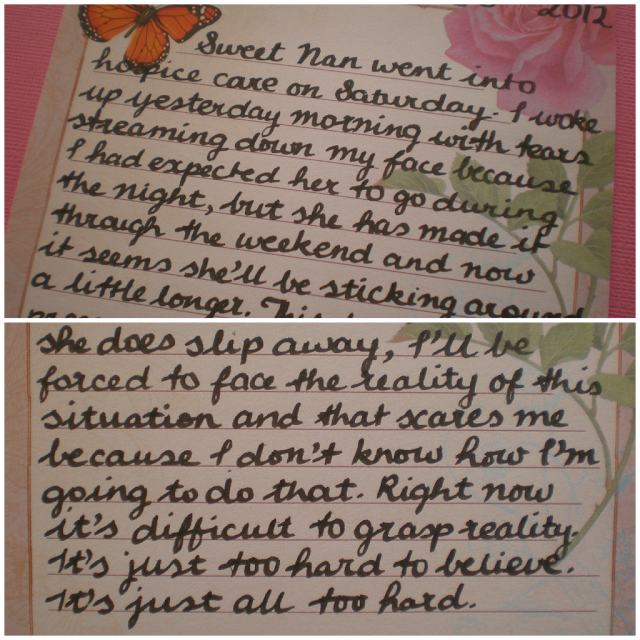 2012
Sweet Nan went into
hospice care on Saturday. I woke
up yesterday morning with tears
streaming down my face because
I had expected her to go during
the night, but she has made it
through the weekend and now
it seems she'll be sticking around
a little longer. This
she does slip away, I'll be
forced to face the reality of this
situation and that scares me
because I don't know how I'm
going to do that. Right now
it's difficult to grasp reality.
It's just too hard to believe.
It's just all too hard.